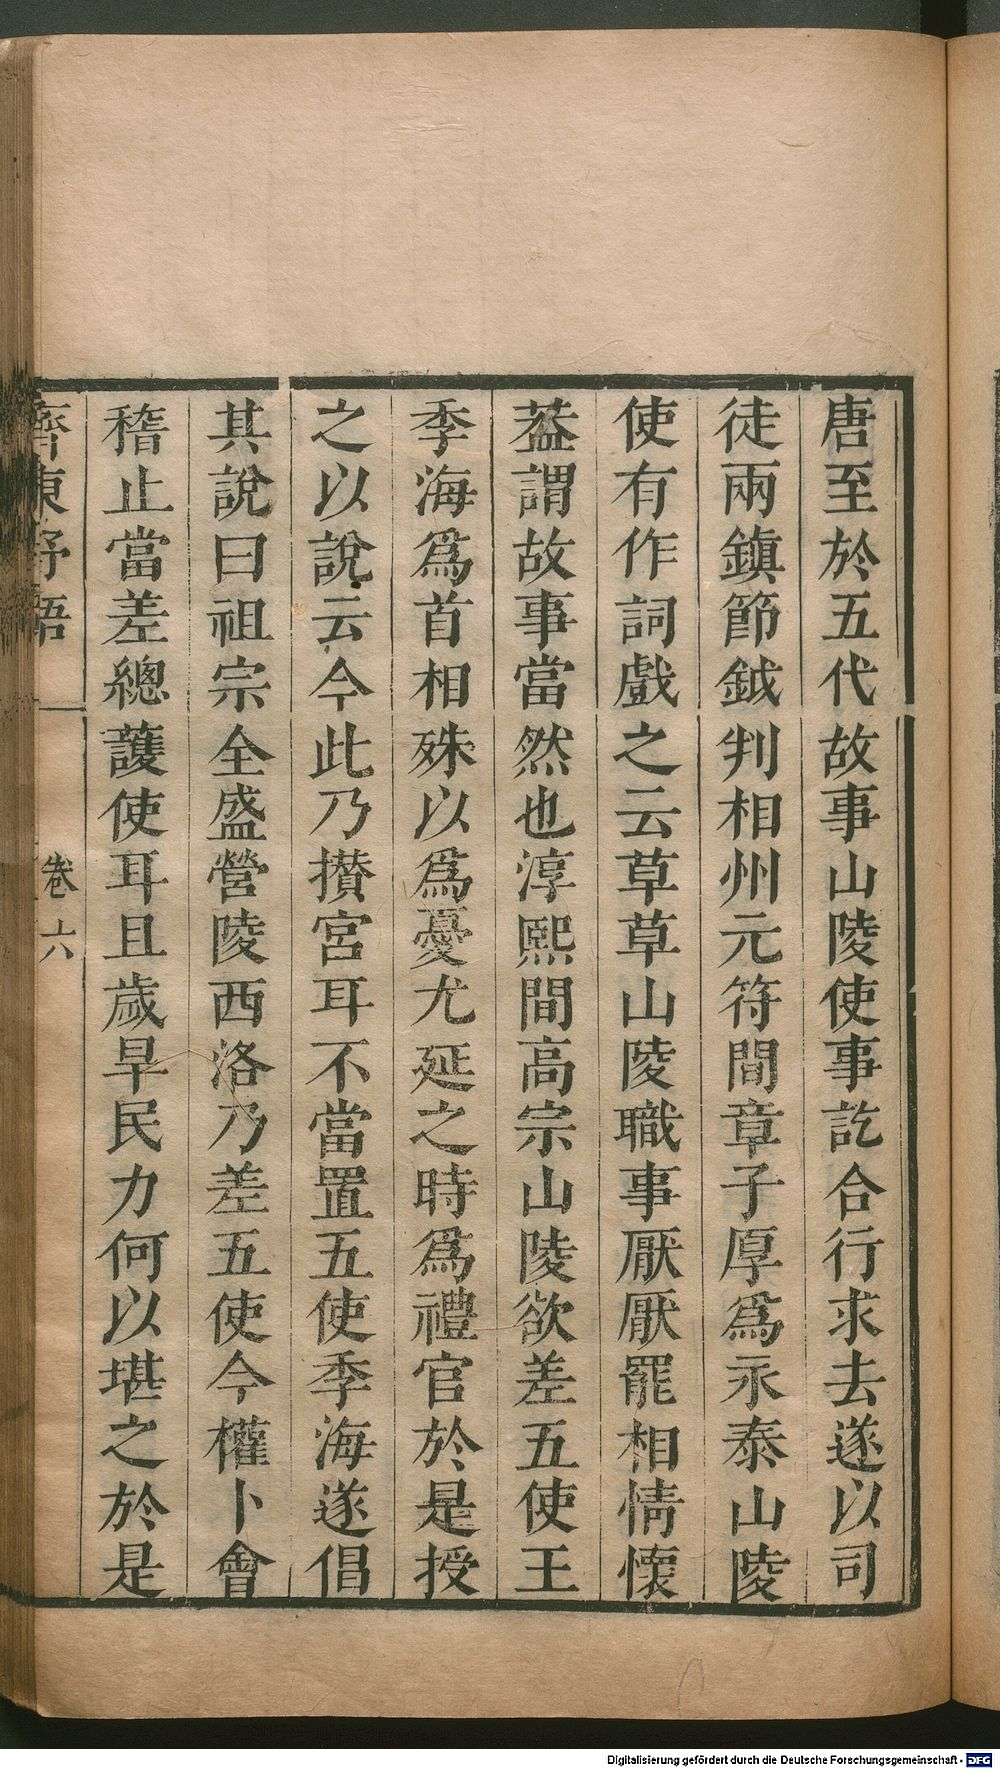 唐至於五代故事山陵使事訖合行求去遂以司
徒兩鎮節鉞判相州元符間章子厚爲永泰山陵
使有作詞戲之云草草山陵職事厭厭罷相情懷
葢謂故事當然也淳熙間高宗山陵欲差五使王
季海爲首相殊以爲憂尤延之時爲禮官於是授
之以說云今此乃攢宮耳不當置五使季海遂倡
其說曰祖宗全盛營陵西洛乃差五使今權卜會
稽止當差總護使耳且歲旱民力何以堪之於是
齊東野語 卷六
Digitalisierung gefördert durch die Deutsche Forschungsgemeinschaft - DFG